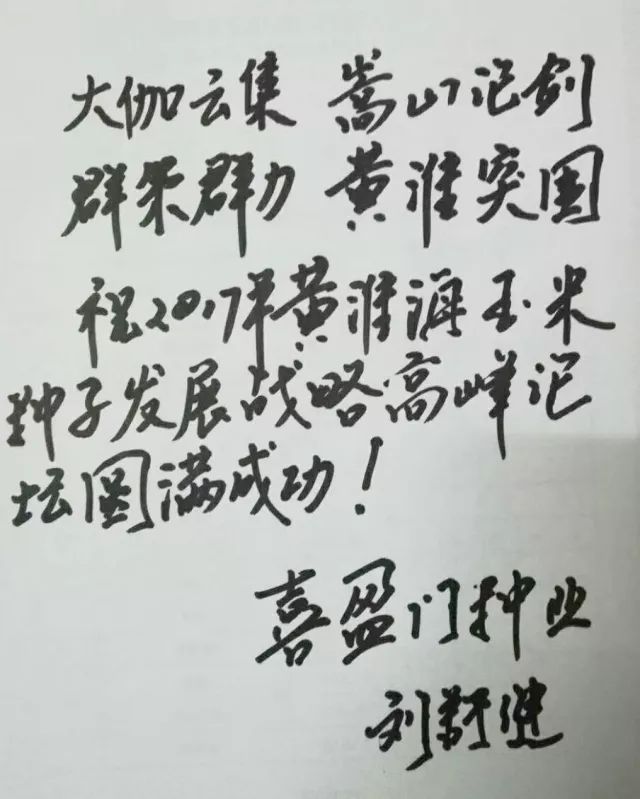 大伽云集 嵩山论剑
群策群力 黄淮突围
祝2017年黄淮海玉米
种子发展战略高峰论
坛圆满成功!
喜盈门种业
刘